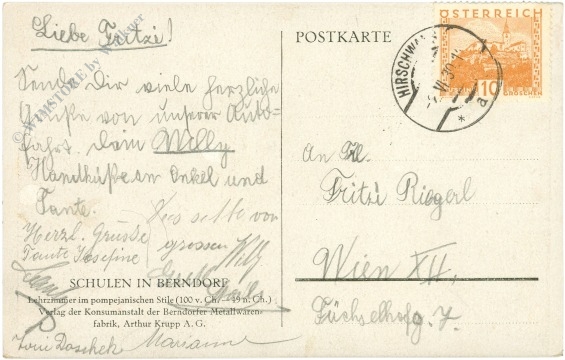 Liebe Fritzi!
Sende Dir viele herzliche
Grüße von unserer Auto-
fahrt. Dein Willy
Handküße an Onkel und
Tante.
Herzl. Grüsse
Tante Josefine
Dasselbe von
grossen Willy
SCHULEN IN BERNDORF
Lehrzimmer im pompejanischen Stile (100 v. Ch.—49 n. Ch.)
Verlag der Konsumanstalt der Berndorfer Metallwaren-
fabrik, Arthur Krupp A. G.
Marianne
POSTKARTE
ÖSTERREICH
10
GROSCHEN
HIRSCHWA
VI. 30
a
An Frl.
Fritzi Riegerl
Wien XII.
Füchselhofg. 7
© WIMSTORE by